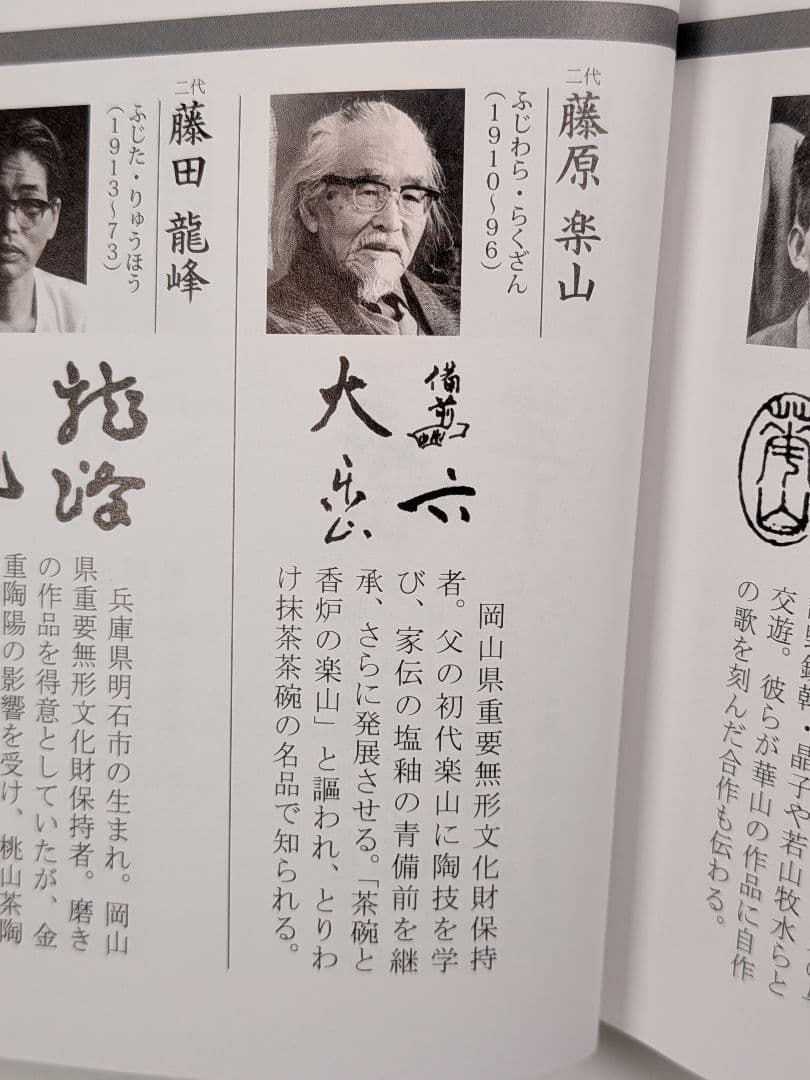 二代
藤原 楽山
ふじわら・らくざん
(1910〜96)
備前
六
大
楽山
岡山県重要無形文化財保持
者。父の初代楽山に陶技を学
び、家伝の塩釉の青備前を継
承、さらに発展させる。「茶碗と
香炉の楽山」と謳われ、とりわ
け抹茶茶碗の名品で知られる。
二代
藤田 龍峰
ふじた・りゅうほう
(1913〜73)
龍峰
兵庫県明石市の生まれ。岡山
県重要無形文化財保持者。磨き
の作品を得意としていたが、金
重陶陽の影響を受け、桃山茶陶
華山
・晶子や若山牧水らと
交遊。彼らが華山の作品に自作
の歌を刻んだ合作も伝わる。